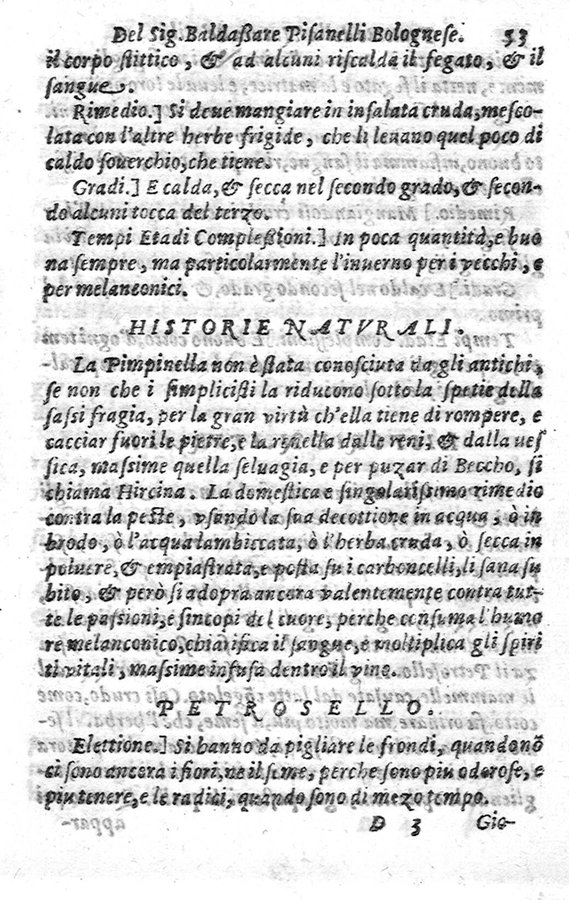 Del Sig. Baldaßare Pisanelli Bolognese. 53
il corpo stittico, & ad alcuni riscalda il fegato, & il
sangue.
Rimedio.] Si deue mangiare in insalata cruda, mesco-
lata con l'altre herbe frigide, che li leuano quel poco di
caldo souerchio, che tiene.
Gradi.] E calda, & secca nel secondo grado, & secon-
do alcuni tocca del terzo.
Tempi Etadi Compleßioni.] In poca quantità, e buo
na sempre, ma particolarmente l'inuerno per i vecchi, e
per melanconici.
HISTORIE NATVRALI.
La Pimpinella non è stata conosciuta da gli antichi,
se non che i simplicisti la riducono sotto la spetie della
sassi fragia, per la gran virtù ch'ella tiene di rompere, e
cacciar fuori le pietre, e la renella dalle reni, & dalla ues
sica, massime quella seluagia, e per puzar di Beccho, si
chiama Hircina. La domestica e singolarissimo rimedio
contra la peste, vsando la sua decottione in acqua, ò in
brodo, ò l'acqua lambiccata, ò l'herba cruda, ò secca in
poluere, & empiastrata, e posta su i carboncelli, li sana su
bito, & però si adopra ancora valentemente contra tut-
te le passioni, e sincopi del cuore, perche consuma l'humo
re melanconico, chiarifica il sangue, e moltiplica gli spiri
ti vitali, massime infusa dentro il vino.
PETROSELLO.
Elettione.] Si hanno da pigliare le frondi, quando nō
ci sono ancora i fiori, ne il seme, perche sono piu odorose, e
piu tenere, e le radici, quando sono di mezo tempo.
D 3 Gio-